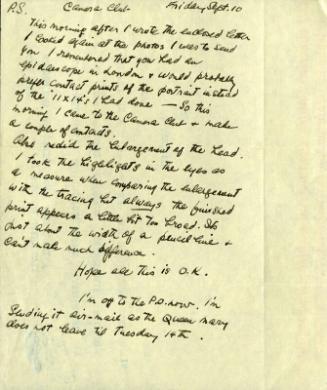 P.S. Camera Club Friday Sept. 10
This morning after I wrote the enclosed letter
I looked again at the photos I was to send
you. I remembered that you had an
epidiascope in London & would probably
prefer contact prints of the portrait instead
of the 11x14's I had done — So this
morning I came to the Camera Club & make
a couple of contacts.
Also redid the enlargement of the head.
I took the highlights in the eyes as
a measure when comparing the enlargement
with the tracing but always the finished
print appears a little bit too broad. It's
just about the width of a pencil line &
can't make much difference.
Hope all this is O.K.
I'm off to the P.O. now. I'm
sending it air-mail as the Queen Mary
does not leave til Tuesday 14th.